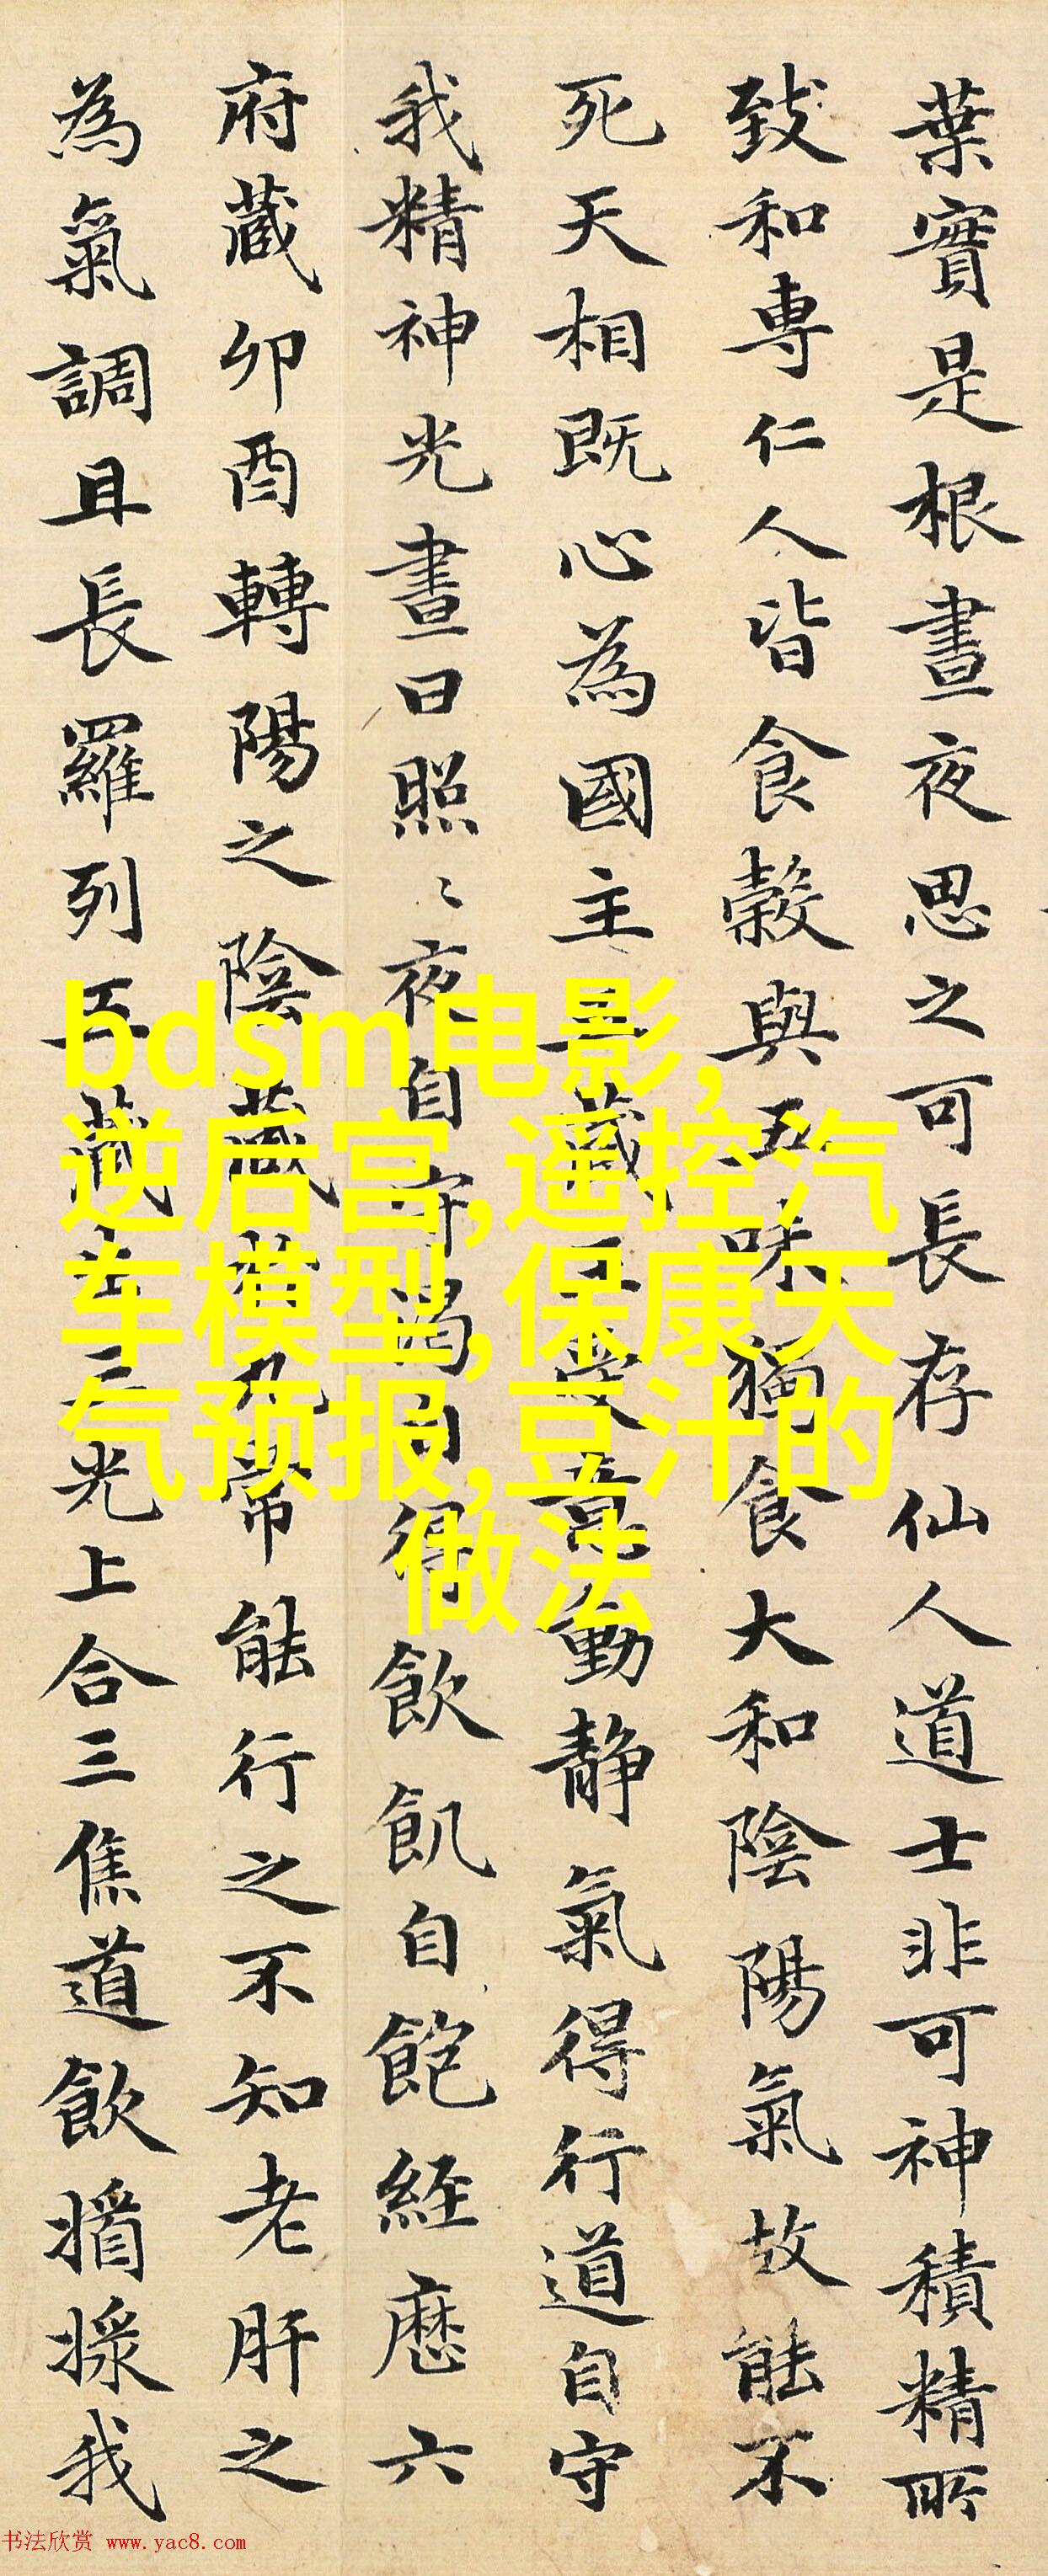 葉實是根晝夜思之可長存仙人道士非可神積精所
致和専仁人皆食穀與五味獨食大和陰陽氣故能不
死天相既心為國主五藏王受意動静氣得行道自守
我精神光晝日照〻夜自守渴自得飲飢自飽經歷六
府藏卯酉轉陽之陰藏於九常能行之不知老肝之
為氣調且長羅列五藏主三光上合三焦道飲㨶㨾我
bdsm电影,
逆后宫,遥控汽
车模型,保康天
气预报,豆汁的
做法
书法欣赏 www.yac8.com